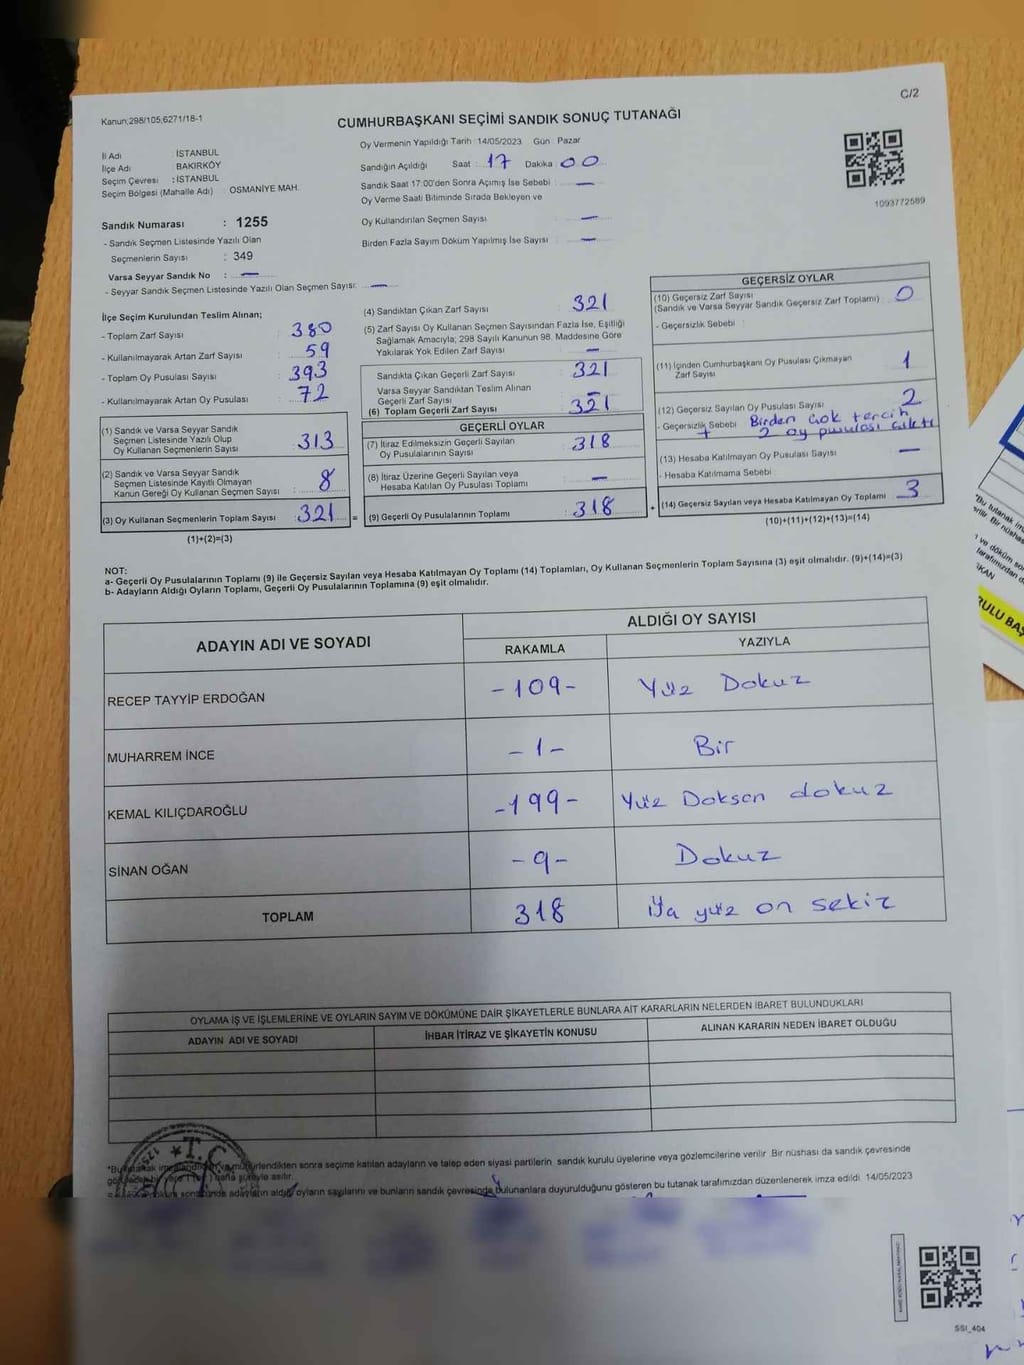 C/2
Kanun;298/105;6271/18-1
CUMHURBAŞKANI SEÇİMİ SANDIK SONUÇ TUTANAĞI
İl Adı : İSTANBUL
İlçe Adı : BAKIRKÖY
Seçim Çevresi : İSTANBUL
Seçim Bölgesi (Mahalle Adı) : OSMANİYE MAH.
Sandık Numarası : 1255
- Sandık Seçmen Listesinde Yazılı Olan
Seçmenlerin Sayısı : 349
Varsa Seyyar Sandık No : —
- Seyyar Sandık Seçmen Listesinde Yazılı Olan Seçmen Sayısı: —
Oy Vermenin Yapıldığı Tarih : 14/05/2023 Gün : Pazar
Sandığın Açıldığı Saat : 17 Dakika : 00
Sandık Saat 17:00'den Sonra Açımış İse Sebebi : —
Oy Verme Saati Bitiminde Sırada Bekleyen ve
Oy Kullandırılan Seçmen Sayısı : —
Birden Fazla Sayım Döküm Yapılmış İse Sayısı : —
1093772589
İlçe Seçim Kurulundan Teslim Alınan;
- Toplam Zarf Sayısı : 380
- Kullanılmayarak Artan Zarf Sayısı : 59
- Toplam Oy Pusulası Sayısı : 393
- Kullanılmayarak Artan Oy Pusulası : 72
(1) Sandık ve Varsa Seyyar Sandık
Seçmen Listesinde Yazılı Olup
Oy Kullanan Seçmenlerin Sayısı : 313
(2) Sandık ve Varsa Seyyar Sandık
Seçmen Listesinde Kayıtlı Olmayan
Kanun Gereği Oy Kullanan Seçmen Sayısı : 8
(3) Oy Kullanan Seçmenlerin Toplam Sayısı : 321
(1)+(2)=(3)
(4) Sandıktan Çıkan Zarf Sayısı : 321
(5) Zarf Sayısı Oy Kullanan Seçmen Sayısından Fazla İse, Eşitliği
Sağlamak Amacıyla; 298 Sayılı Kanunun 98. Maddesine Göre
Yakılarak Yok Edilen Zarf Sayısı : —
Sandıkta Çıkan Geçerli Zarf Sayısı : 321
Varsa Seyyar Sandıktan Teslim Alınan
Geçerli Zarf Sayısı : —
(6) Toplam Geçerli Zarf Sayısı : 321
GEÇERLİ OYLAR
(7) İtiraz Edilmeksizin Geçerli Sayılan
Oy Pusulalarının Sayısı : 318
(8) İtiraz Üzerine Geçerli Sayılan veya
Hesaba Katılan Oy Pusulası Toplamı : —
= (9) Geçerli Oy Pusulalarının Toplamı : 318
GEÇERSİZ OYLAR
(10) Geçersiz Zarf Sayısı
(Sandık ve Varsa Seyyar Sandık Geçersiz Zarf Toplamı) : 0
- Geçersizlik Sebebi :
(11) İçinden Cumhurbaşkanı Oy Pusulası Çıkmayan
Zarf Sayısı : 1
(12) Geçersiz Sayılan Oy Pusulası Sayısı : 2
- Geçersizlik Sebebi : Birden çok tercih
+ 2 oy pusulası çıktı
(13) Hesaba Katılmayan Oy Pusulası Sayısı : —
- Hesaba Katılmama Sebebi :
+ (14) Geçersiz Sayılan veya Hesaba Katılmayan Oy Toplamı : 3
(10)+(11)+(12)+(13)=(14)
NOT:
a- Geçerli Oy Pusulalarının Toplamı (9) ile Geçersiz Sayılan veya Hesaba Katılmayan Oy Toplamı (14) Toplamları, Oy Kullanan Seçmenlerin Toplam Sayısına (3) eşit olmalıdır. (9)+(14)=(3)
b- Adayların Aldığı Oyların Toplamı, Geçerli Oy Pusulalarının Toplamına (9) eşit olmalıdır.
ADAYIN ADI VE SOYADI ALDIĞI OY SAYISI
RAKAMLA YAZIYLA
RECEP TAYYİP ERDOĞAN -109- Yüz Dokuz
MUHARREM İNCE -1- Bir
KEMAL KILIÇDAROĞLU -199- Yüz Doksan dokuz
SİNAN OĞAN -9- Dokuz
TOPLAM 318 yüz on sekiz
OYLAMA İŞ VE İŞLEMLERİNE VE OYLARIN SAYIM VE DÖKÜMÜNE DAİR ŞİKAYETLERLE BUNLARA AİT KARARLARIN NELERDEN İBARET BULUNDUKLARI
ADAYIN ADI VE SOYADI İHBAR İTİRAZ VE ŞİKAYETİN KONUSU ALINAN KARARIN NEDEN İBARET OLDUĞU
T.C.
sonra seçime katılan adayların ve talep eden siyasi partilerin sandık kurulu üyelerine veya gözlemcilerine verilir. Bir nüshası da sandık çevresinde
adayların aldığı oyların sayılarını ve bunların sandık çevresinde bulunanlara duyurulduğunu gösteren bu tutanak tarafımızdan düzenlenerek imza edildi. 14/05/2023
SSI_404